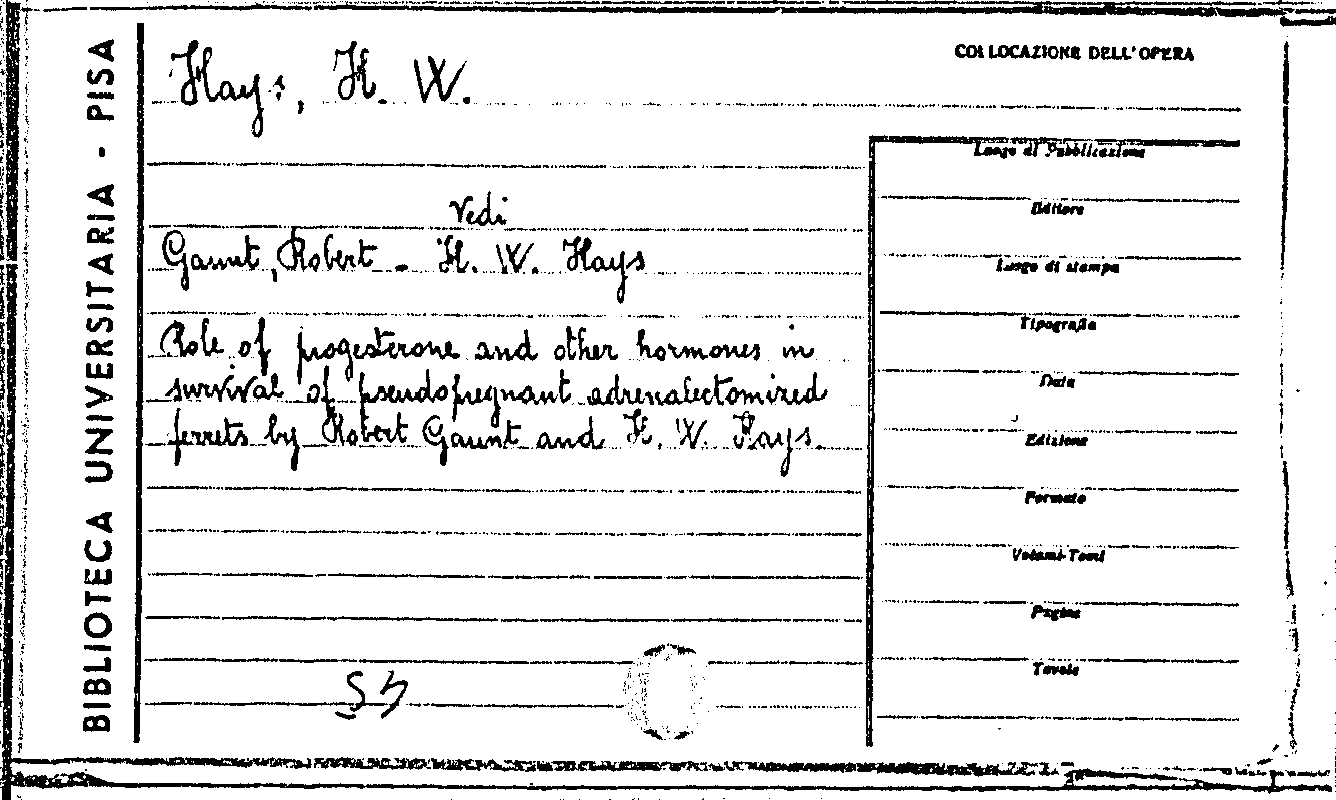 BIBLIOTECA UNIVERSITARIA - PISA
COLLOCAZIONE DELL'OPERA
Hays, H. W.
vedi
Gaunt, Robert - H. W. Hays
Role of progesterone and other hormones in
survival of pseudopregnant adrenalectomized
ferrets by Robert Gaunt and H. W. Hays.
Luogo di Pubblicazione
Editore
Luogo di stampa
Tipografia
Data
Edizione
Formato
Volumi-Tomi
Pagine
Tavole